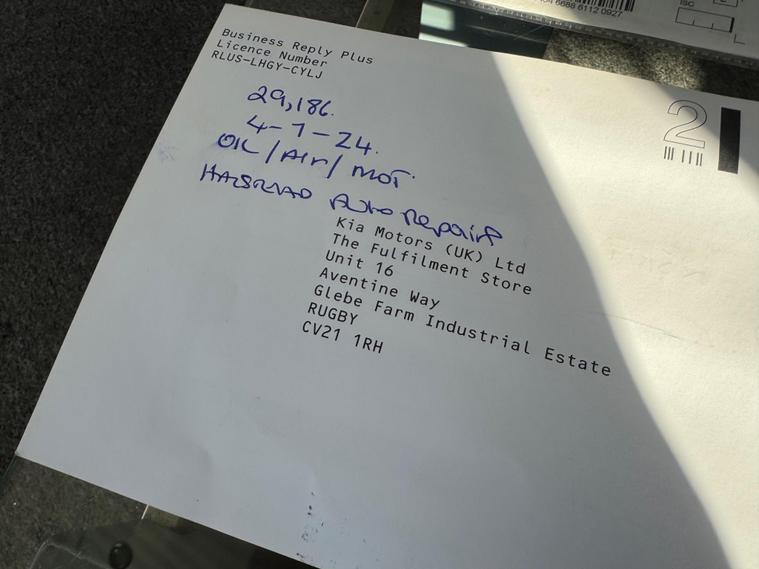 Business Reply Plus
Licence Number
RLUS-LHGY-CYLJ
2
29,186.
4-1-24.
OIL/AIR/MOT.
Auto Repairs
Kia Motors (UK) Ltd
The Fulfilment Store
Unit 16
Aventine Way
Glebe Farm Industrial Estate
RUGBY
CV21 1RH
6688 6112 0927
ISC